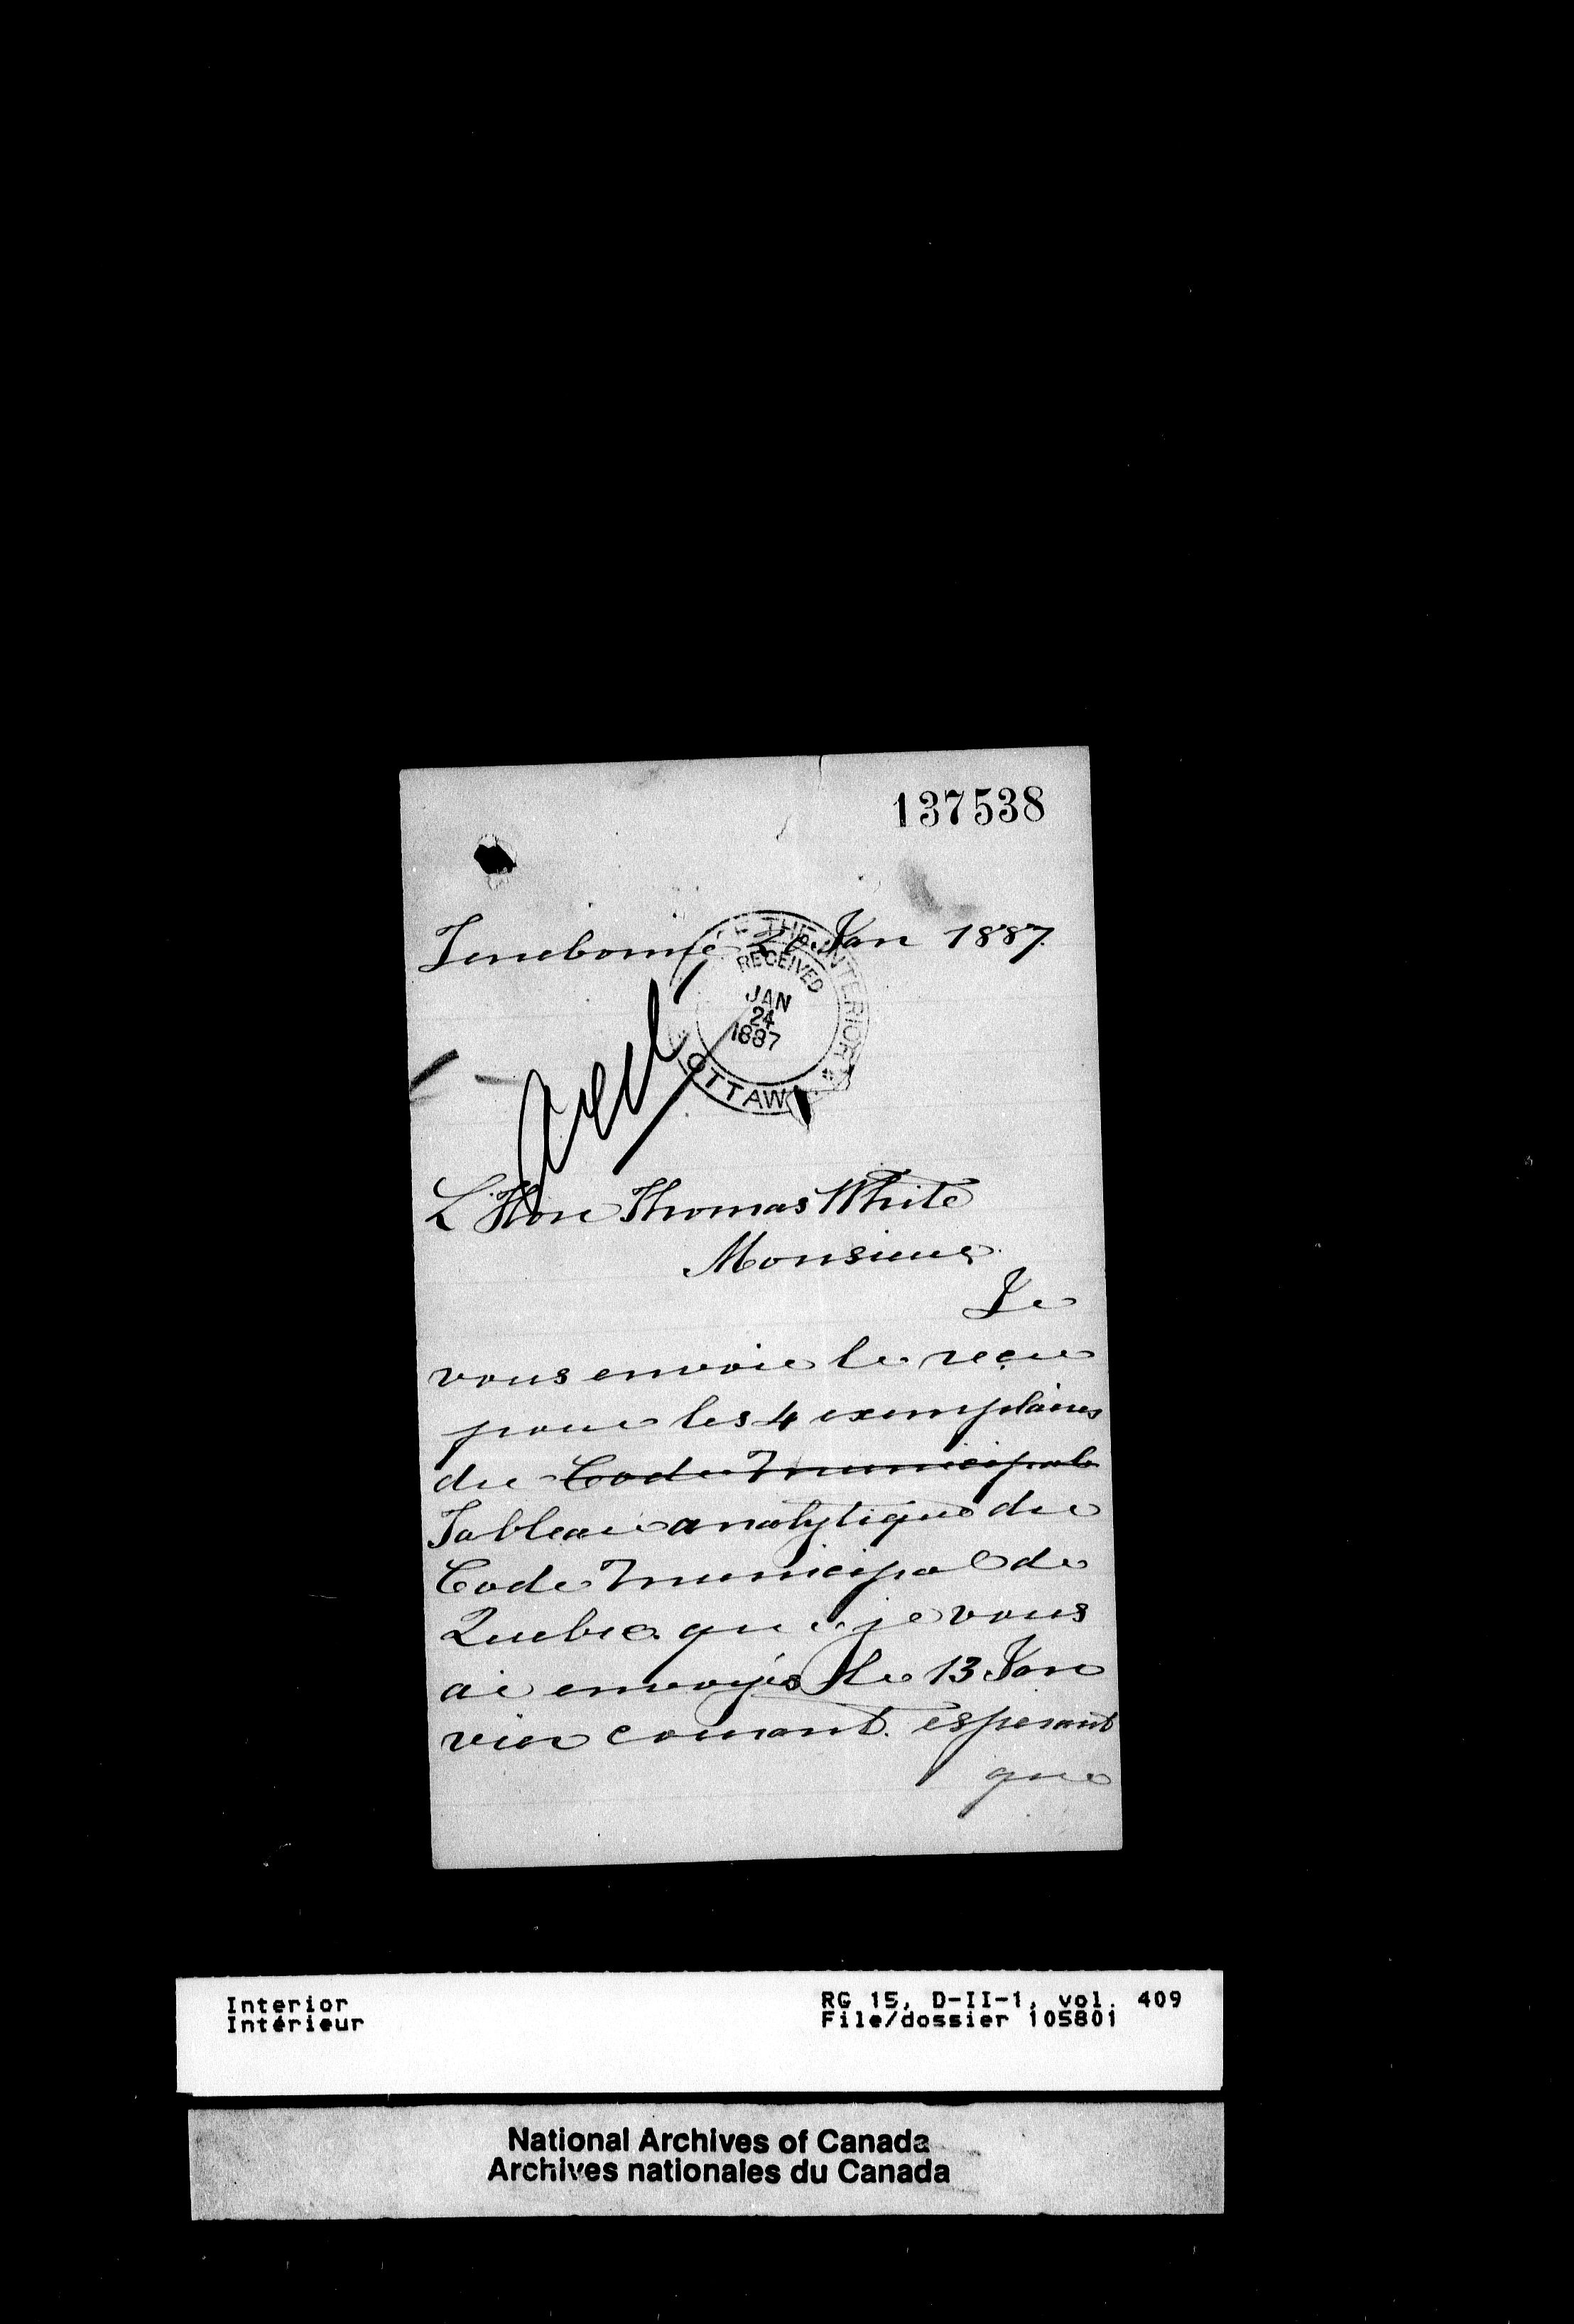 137538
Terrebonne Jan 1887.
OF THE INTERIOR
RECEIVED
JAN
24
1887
OTTAWA
L'Hon Thomas White
Monsieur
Je
vous envoie le reçu
pour les 4 exemplaires
du Code Municipal
Tableau analytique du
Code Municipal de
Quebec que je vous
ai envoyés le 13 Jan
vier courant. esperant
que
Interior
Intérieur
RG 15, D-II-1, vol. 409
File/dossier 105801
National Archives of Canada
Archives nationales du Canada